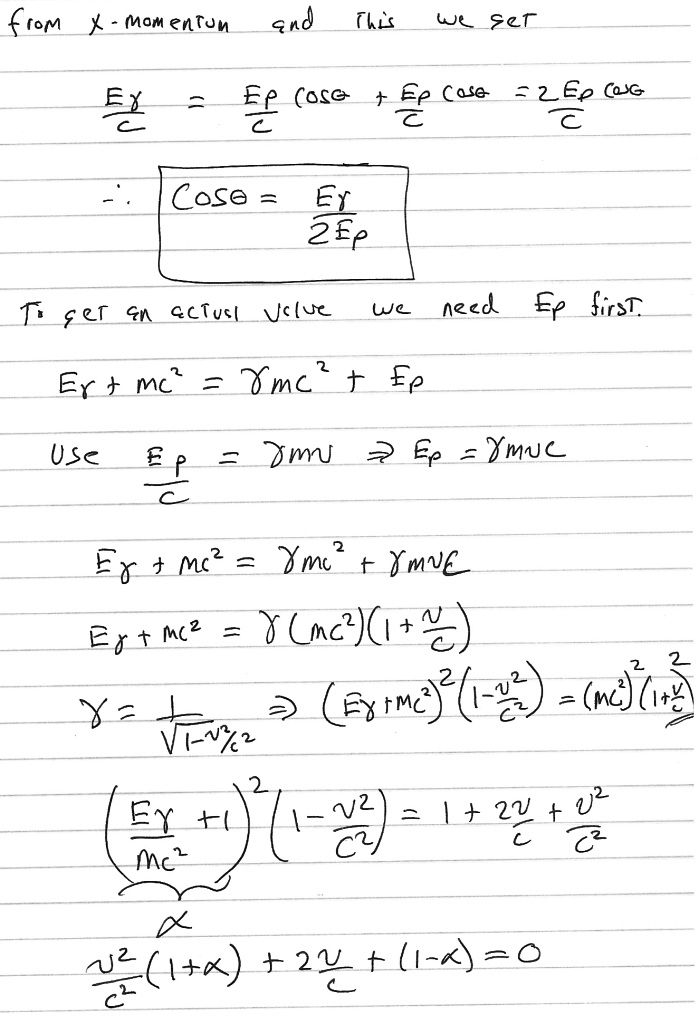 from x-momentum and this we get
Eγ/c = Ep/c cosθ + Ep/c cosθ = 2Ep/c cosθ
∴ cosθ = Eγ/2Ep
To get an actual value we need Ep first.
Eγ + mc² = γmc² + Ep
Use Ep/c = γmv ⇒ Ep = γmvc
Eγ + mc² = γmc² + γmvc
Eγ + mc² = γ(mc²)(1 + v/c)
γ = 1/√(1-v²/c²) ⇒ (Eγ + mc²)²(1 - v²/c²) = (mc²)²(1 + v/c)²
(Eγ/mc² + 1)²(1 - v²/c²) = 1 + 2v/c + v²/c²
α
v²/c²(1+α) + 2v/c + (1-α) = 0